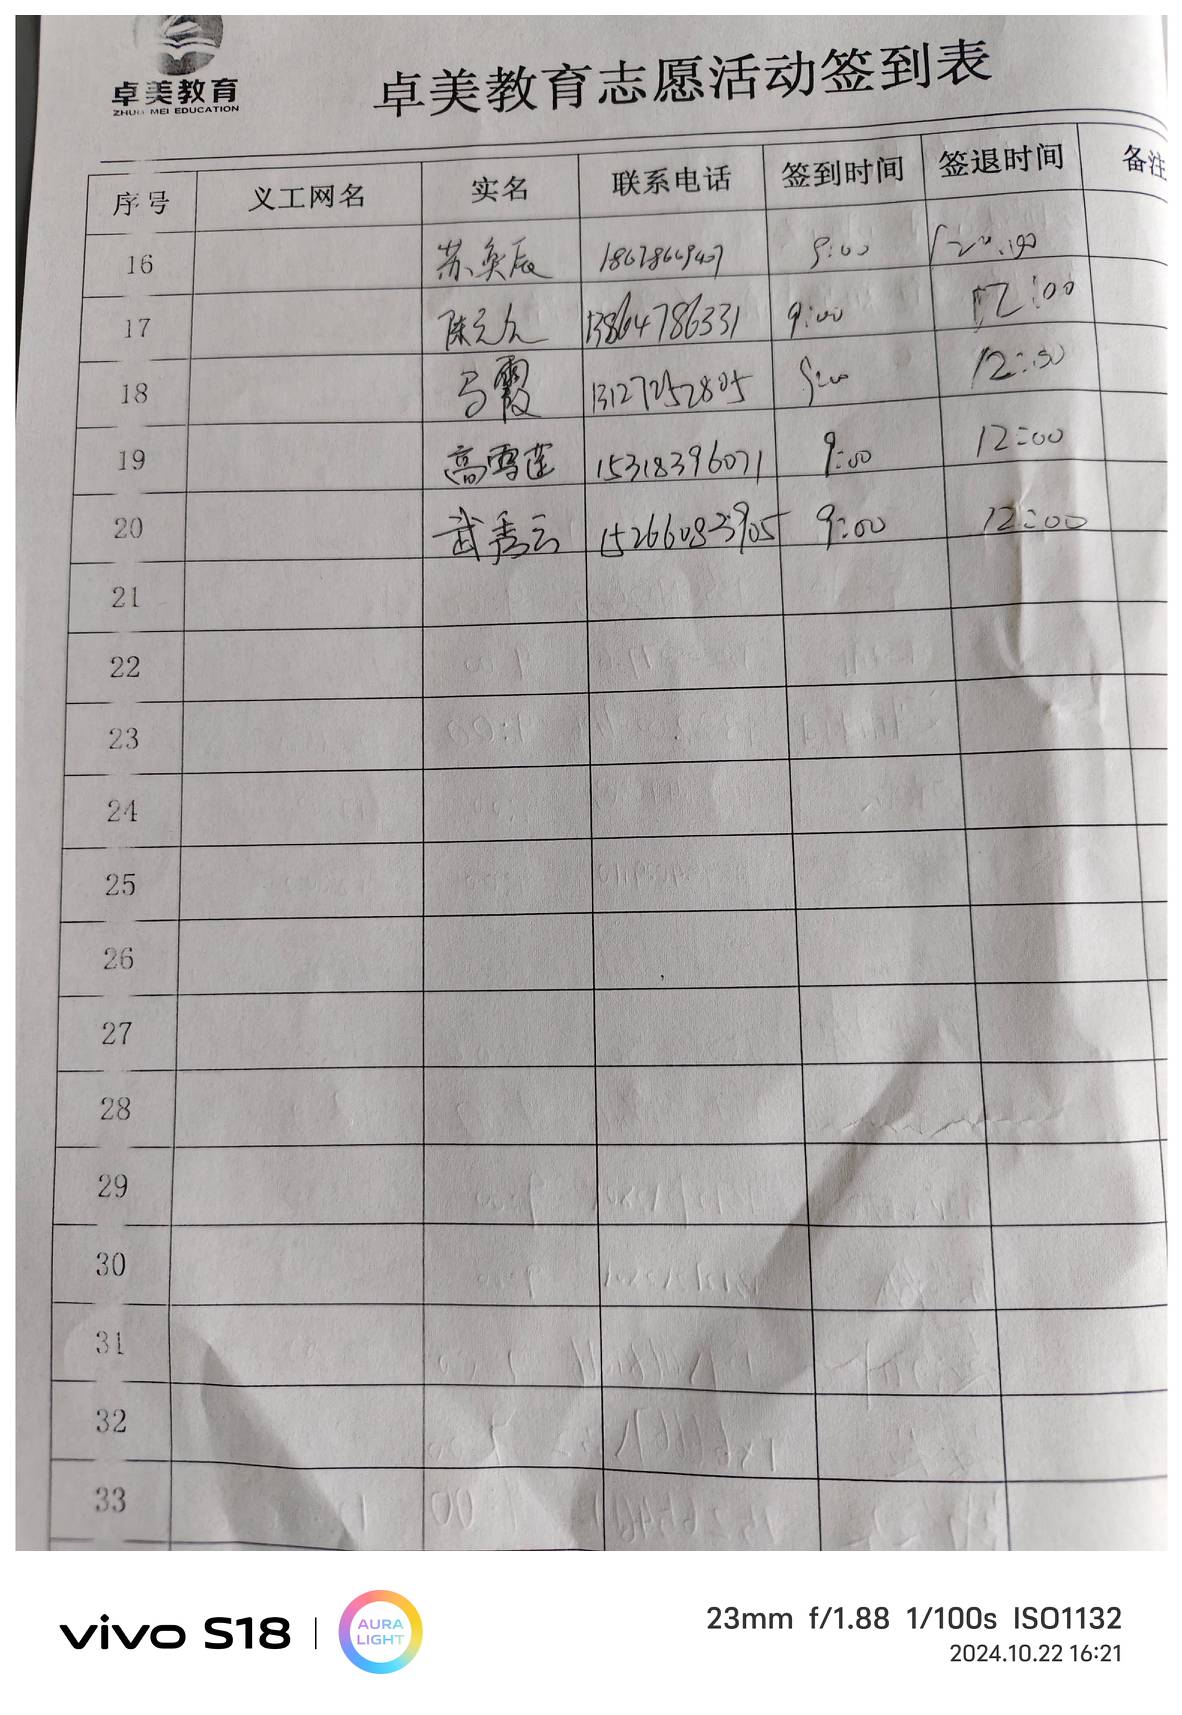 卓美教育
ZHUO MEI EDUCATION
卓美教育志愿活动签到表
序号 义工网名 实名 联系电话 签到时间 签退时间 备注
16 苏奂辰 9:00
17 陈元久 13864786331 9:00 12:00
18 马霞 13127252805 9:00 12:30
19 高雪莲 15318396071 9:00 12:00
20 武秀云 15266083905 9:00 12:00
21
22
23
24
25
26
27
28
29
30
31
32
33
vivo S18
AURA
LIGHT
23mm f/1.88 1/100s ISO1132
2024.10.22 16:21